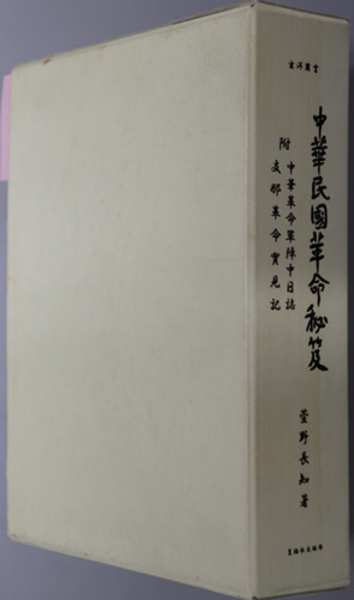 玄洋叢書
中華民國革命秘笈
附
中華革命軍陣中日誌
支那革命實見記
萱野長知著
皇極社出版部